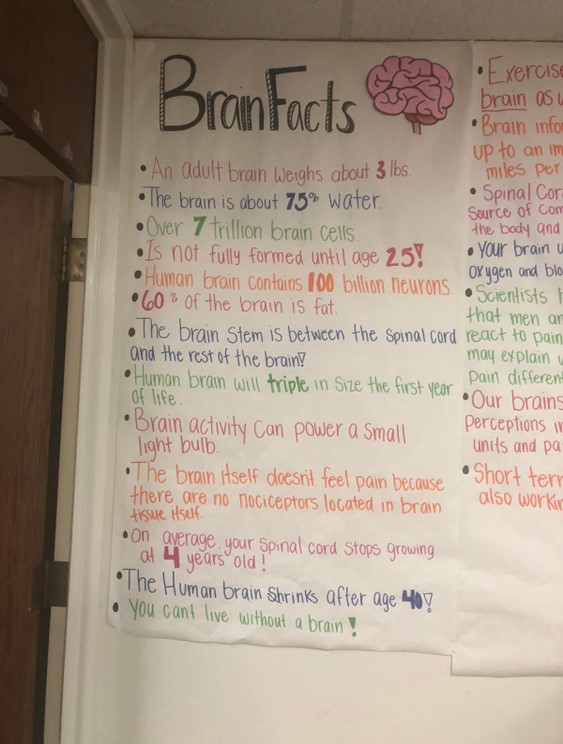 Brain Facts
• An adult brain weighs about 3 lbs.
• The brain is about 75% water.
• Over 7 trillion brain cells.
• Is not fully formed until age 25!
• Human brain contains 100 billion neurons.
• 60% of the brain is fat.
• The brain stem is between the spinal cord
and the rest of the brain!
• Human brain will triple in size the first year
of life.
• Brain activity can power a small
light bulb.
• The brain itself doesn't feel pain because
there are no nociceptors located in brain
tissue itself.
• On average, your spinal cord stops growing
at 4 years old!
• The Human brain shrinks after age 40!
• You cant live without a brain!
• Exercise
brain as
• Brain
up to an
miles per
• Spinal
Source of
the body and
• Your brain
oxygen and
• Scientists
that men
react to pain
may explain
pain
• Our brains
perceptions
units and
• Short
also